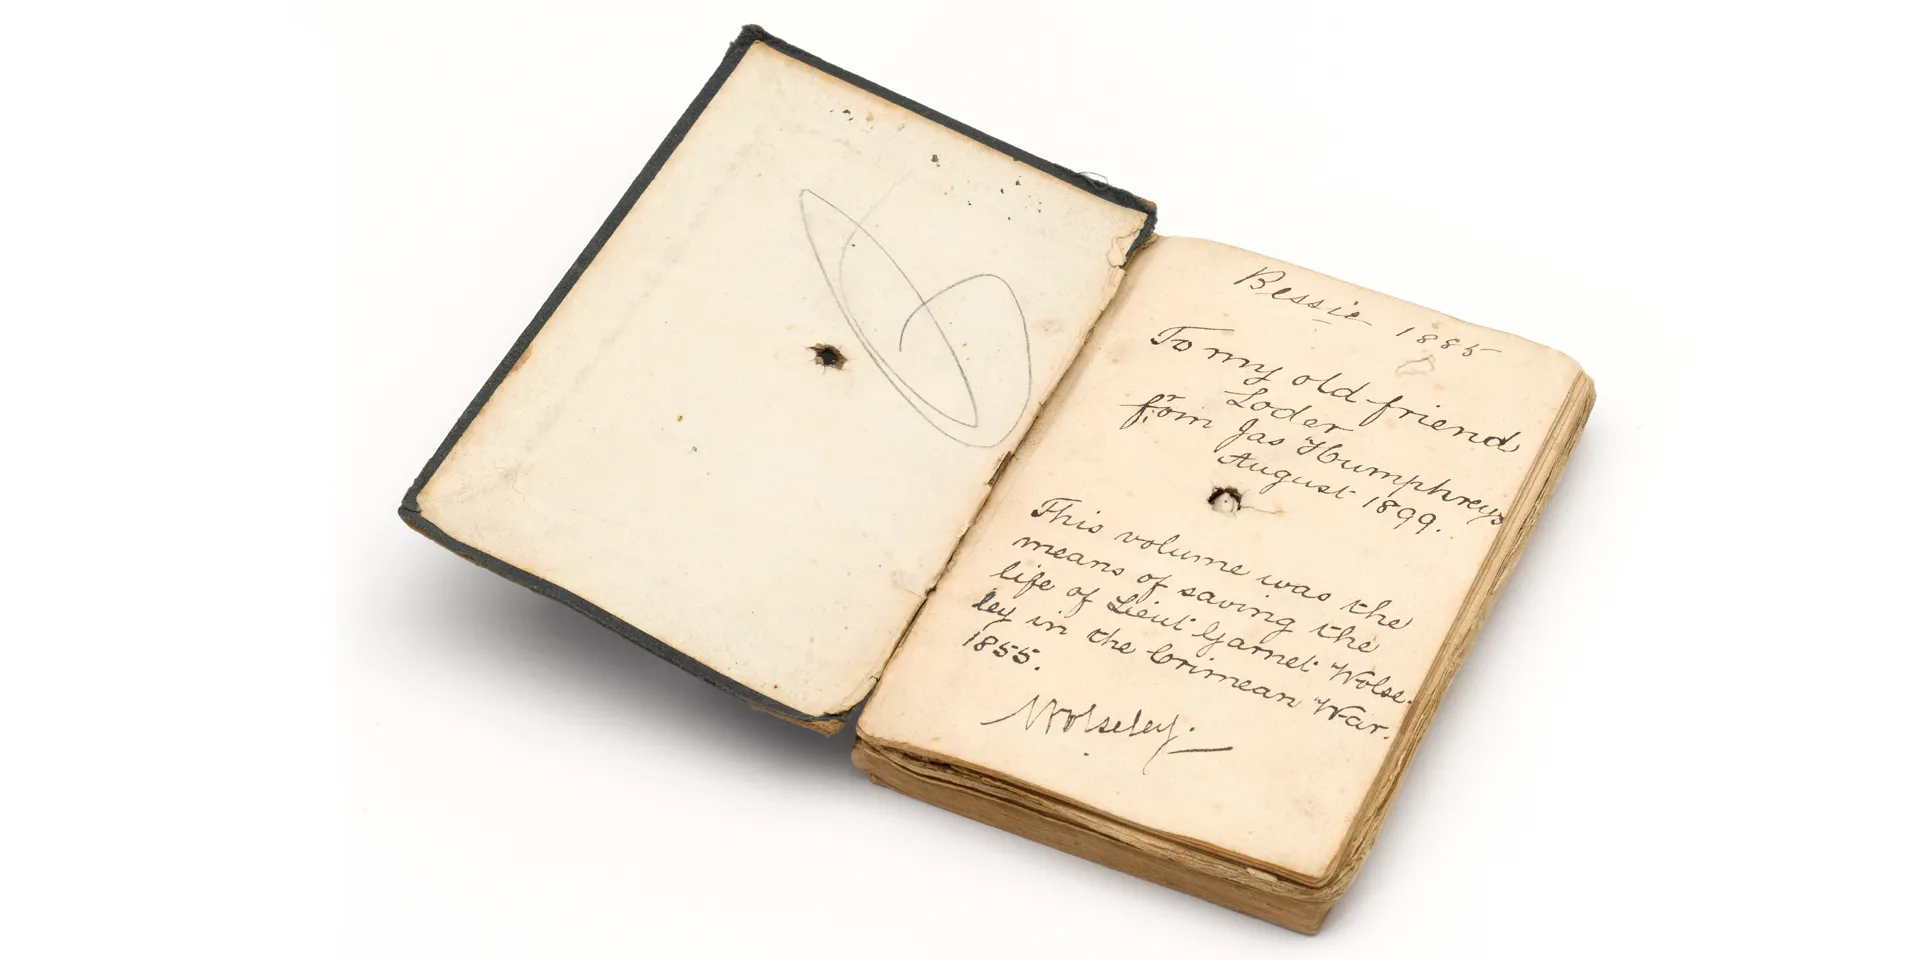 Bessie 1885
To my old friend
Loder
from Jas Humphreys
August 1899.
This volume was the
means of saving the
life of Lieut Garnet Wolse-
ley in the Crimean War.
1855.
Wolseley.